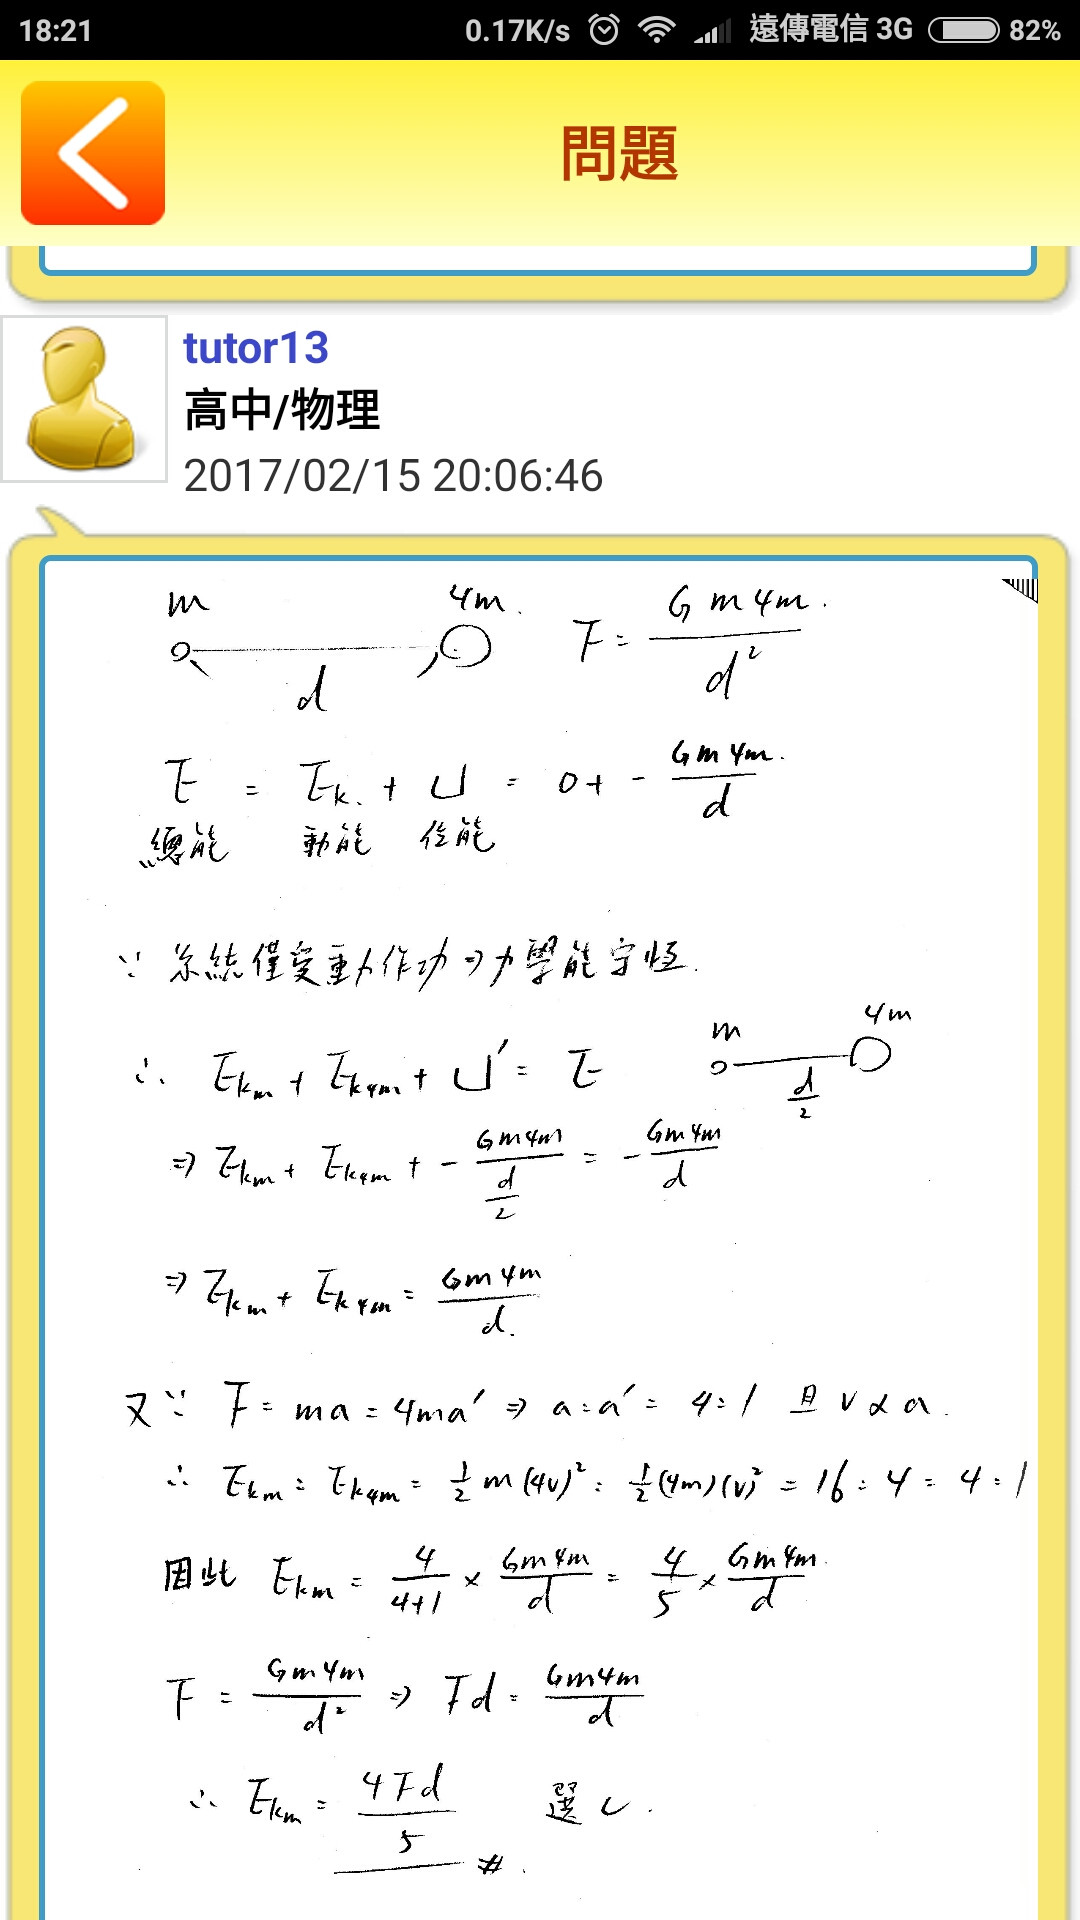 18:21 0.17K/s 遠傳電信 3G 82%
問題
tutor13
高中/物理
2017/02/15 20:06:46
m 4m. F = G m 4m. / d²
d
E = Ek. + U = 0 + - G m 4m. / d
總能 動能 位能
∵ 系統僅受重力作功 ⇒ 力學能守恆.
m 4m
∴ Ekm + Ek4m + U′ = E
d/2
⇒ Ekm + Ek4m + - G m 4m / (d/2) = - G m 4m / d
⇒ Ekm + Ek4m = G m 4m / d.
又∵ F = ma = 4ma′ ⇒ a : a′ = 4 : 1 且 v ∝ a.
∴ Ekm : Ek4m = 1/2 m (4v)² : 1/2 (4m) (v)² = 16 : 4 = 4 : 1
因此 Ekm = 4 / (4+1) × G m 4m / d = 4/5 × G m 4m. / d
F = G m 4m / d² ⇒ Fd = G m 4m / d
∴ Ekm = 4Fd / 5 # . 選 C .